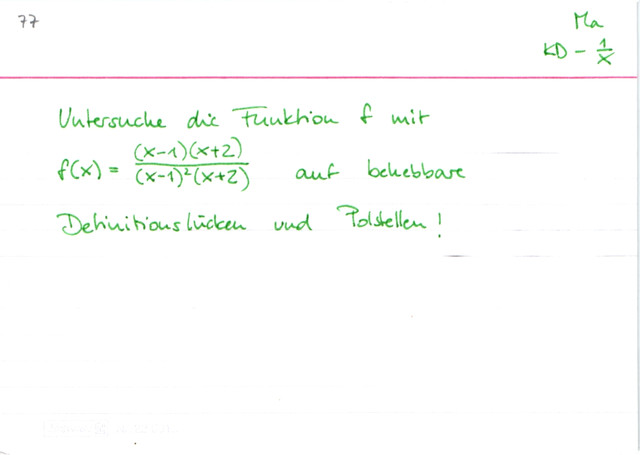 77
Ma
KD - 1/x
Untersuche die Funktion f mit
f(x) = (x-1)(x+2)/(x-1)²(x+2) auf behebbare
Definitionslücken und Polstellen!